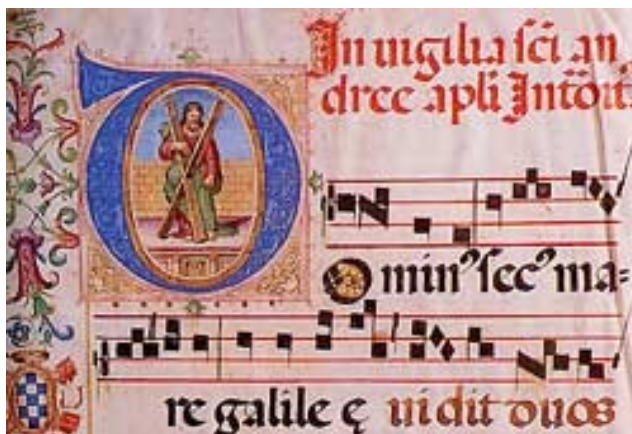 In vigilia sci an
dree apli Introit
Ominꝰ secꝰ ma=
re galileę vidit duos